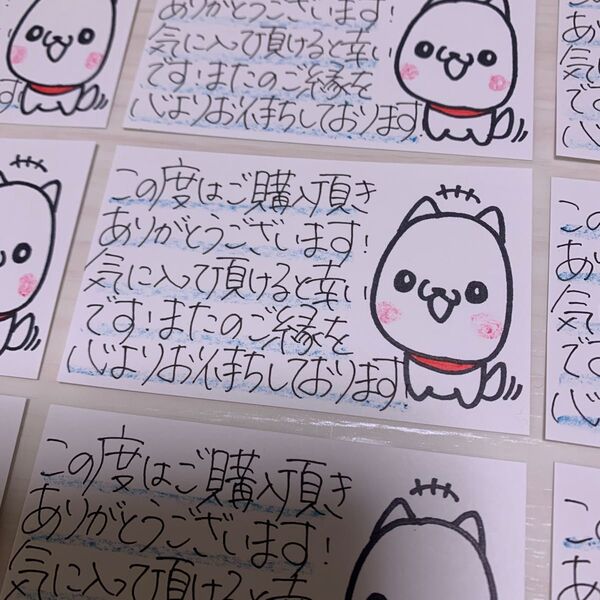 ありがとうございます!
気に入って頂けると幸い
です!またのご縁を
心よりお待ちしております!
この度はご購入頂き
ありがとうございます!
気に入って頂けると幸い
です!またのご縁を
心よりお待ちしております!
この度はご購入頂き
ありがとうございます!
気に入って頂けると幸
す!
この
あり
気に
です
心よ